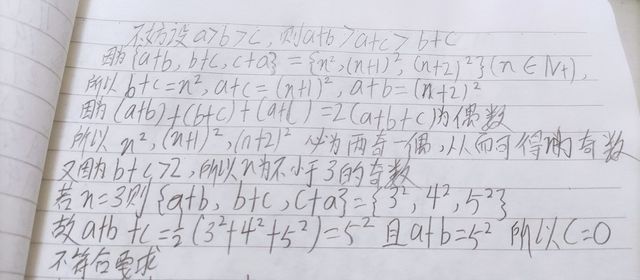 不妨设a>b>c,则a+b>a+c>b+c
因为{a+b,b+c,c+a}={n²,(n+1)²,(n+2)²}(n∈N+),
所以b+c=n²,a+c=(n+1)²,a+b=(n+2)²
因为(a+b)+(b+c)+(a+c)=2(a+b+c)为偶数
所以n²,(n+1)²,(n+2)²必为两奇一偶,从而可得n为奇数
又因为b+c>2,所以n为不小于3的奇数
若n=3则{a+b,b+c,c+a}={3²,4²,5²}
故a+b+c=½(3²+4²+5²)=5²且a+b=5²所以C=0
不符合要求